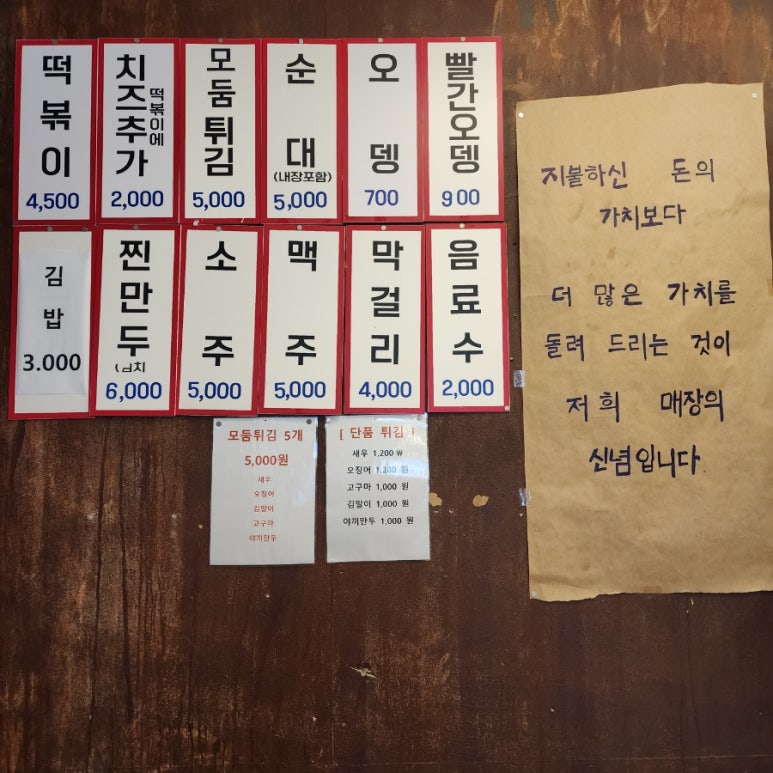 떡볶이
4,500
치즈추가
떡볶이에
2,000
모둠튀김
5,000
순대
(내장포함)
5,000
오뎅
700
빨간오뎅
900
김밥
3.000
찐만두
6,000
소주
5,000
맥주
5,000
막걸리
4,000
음료수
2,000
모둠튀김 5개
5,000원
새우
오징어
김말이
고구마
야끼만두
[ 단품 튀김 ]
새우 1,200 ₩
오징어 1,200 원
고구마 1,000 원
김말이 1,000 원
야끼만두 1,000 원
지불하신 돈의
가치보다
더 많은 가치를
돌려 드리는 것이
저희 매장의
신념입니다.